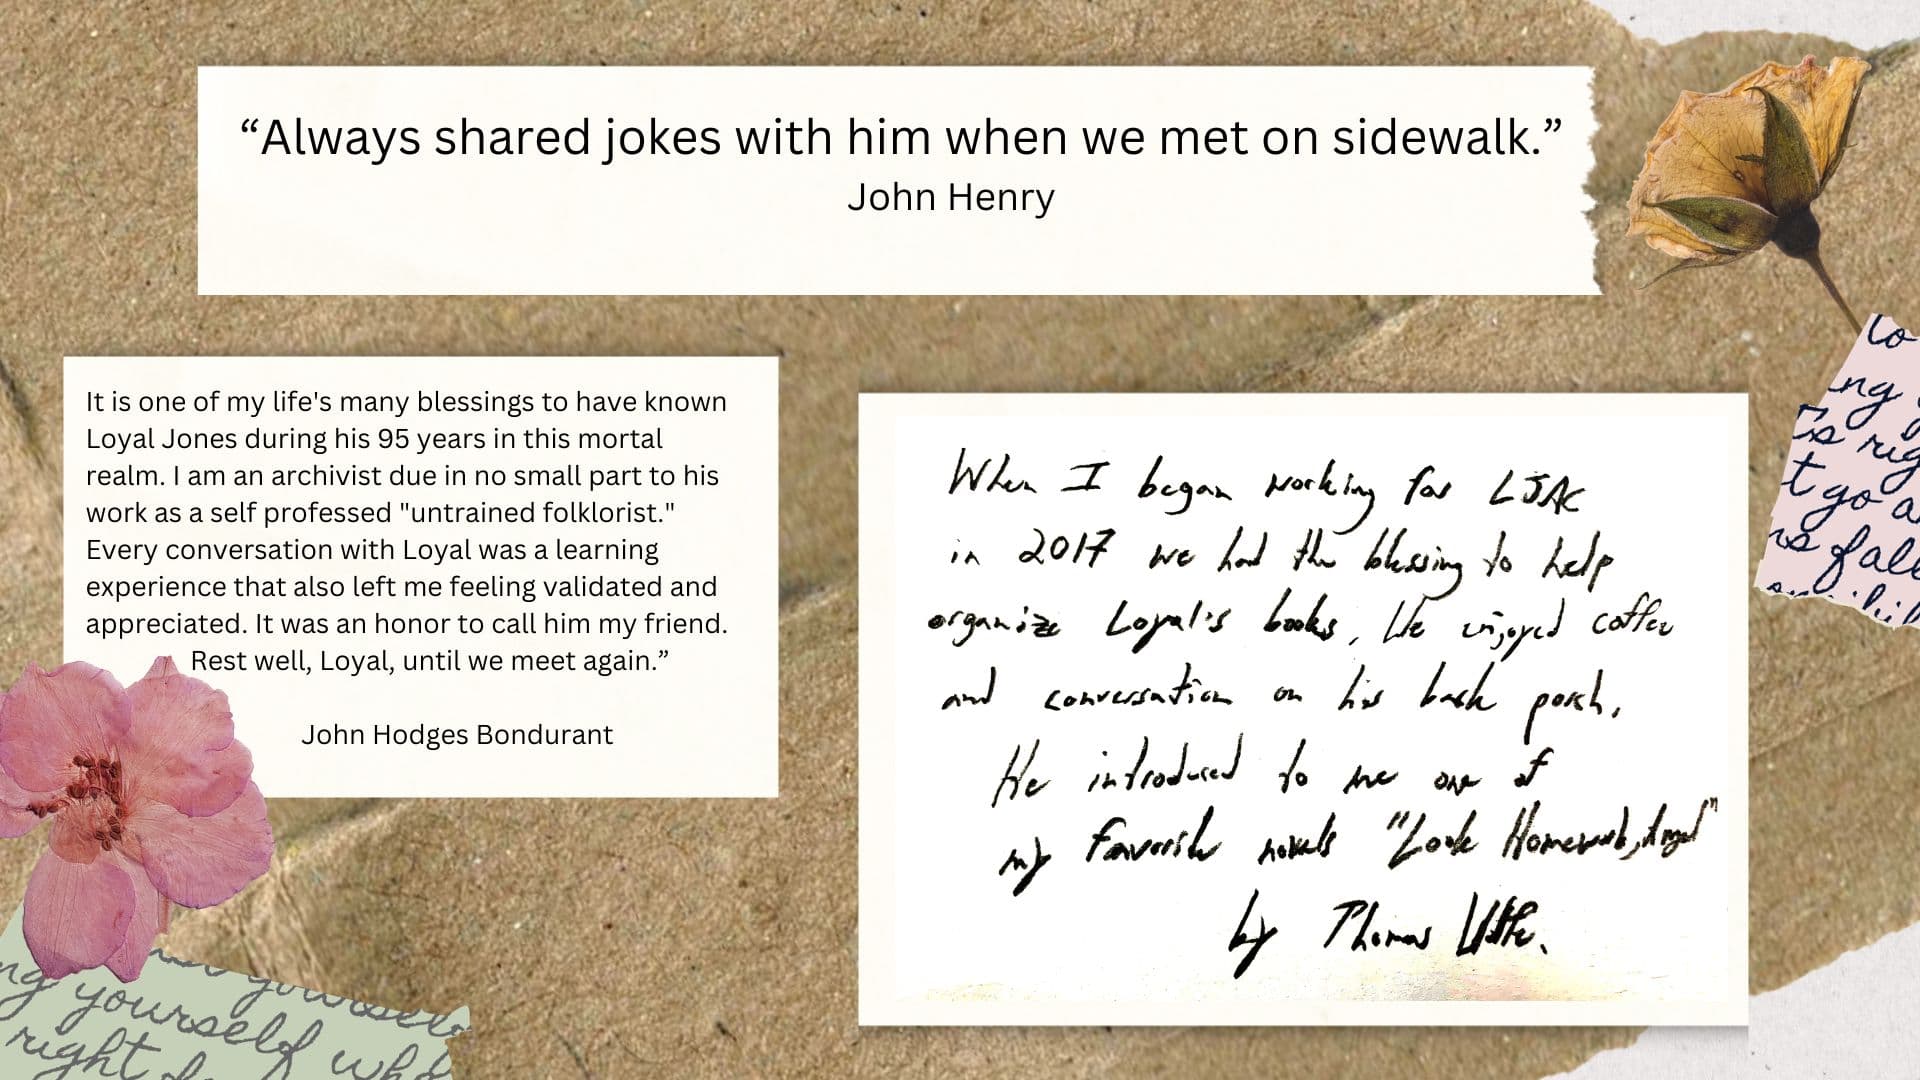 “Always shared jokes with him when we met on sidewalk.”
John Henry
It is one of my life's many blessings to have known
Loyal Jones during his 95 years in this mortal
realm. I am an archivist due in no small part to his
work as a self professed "untrained folklorist."
Every conversation with Loyal was a learning
experience that also left me feeling validated and
appreciated. It was an honor to call him my friend.
Rest well, Loyal, until we meet again.”
John Hodges Bondurant
When I began working for LJAC
in 2017 we had the blessing to help
organize Loyal's books, We enjoyed coffee
and conversation on his back porch,
He introduced to me one of
my favorite novels "Look Homeward, Angel"
by Thomas Wolfe.
to
ng
t go a
fall
yourself
ng yourself who
right